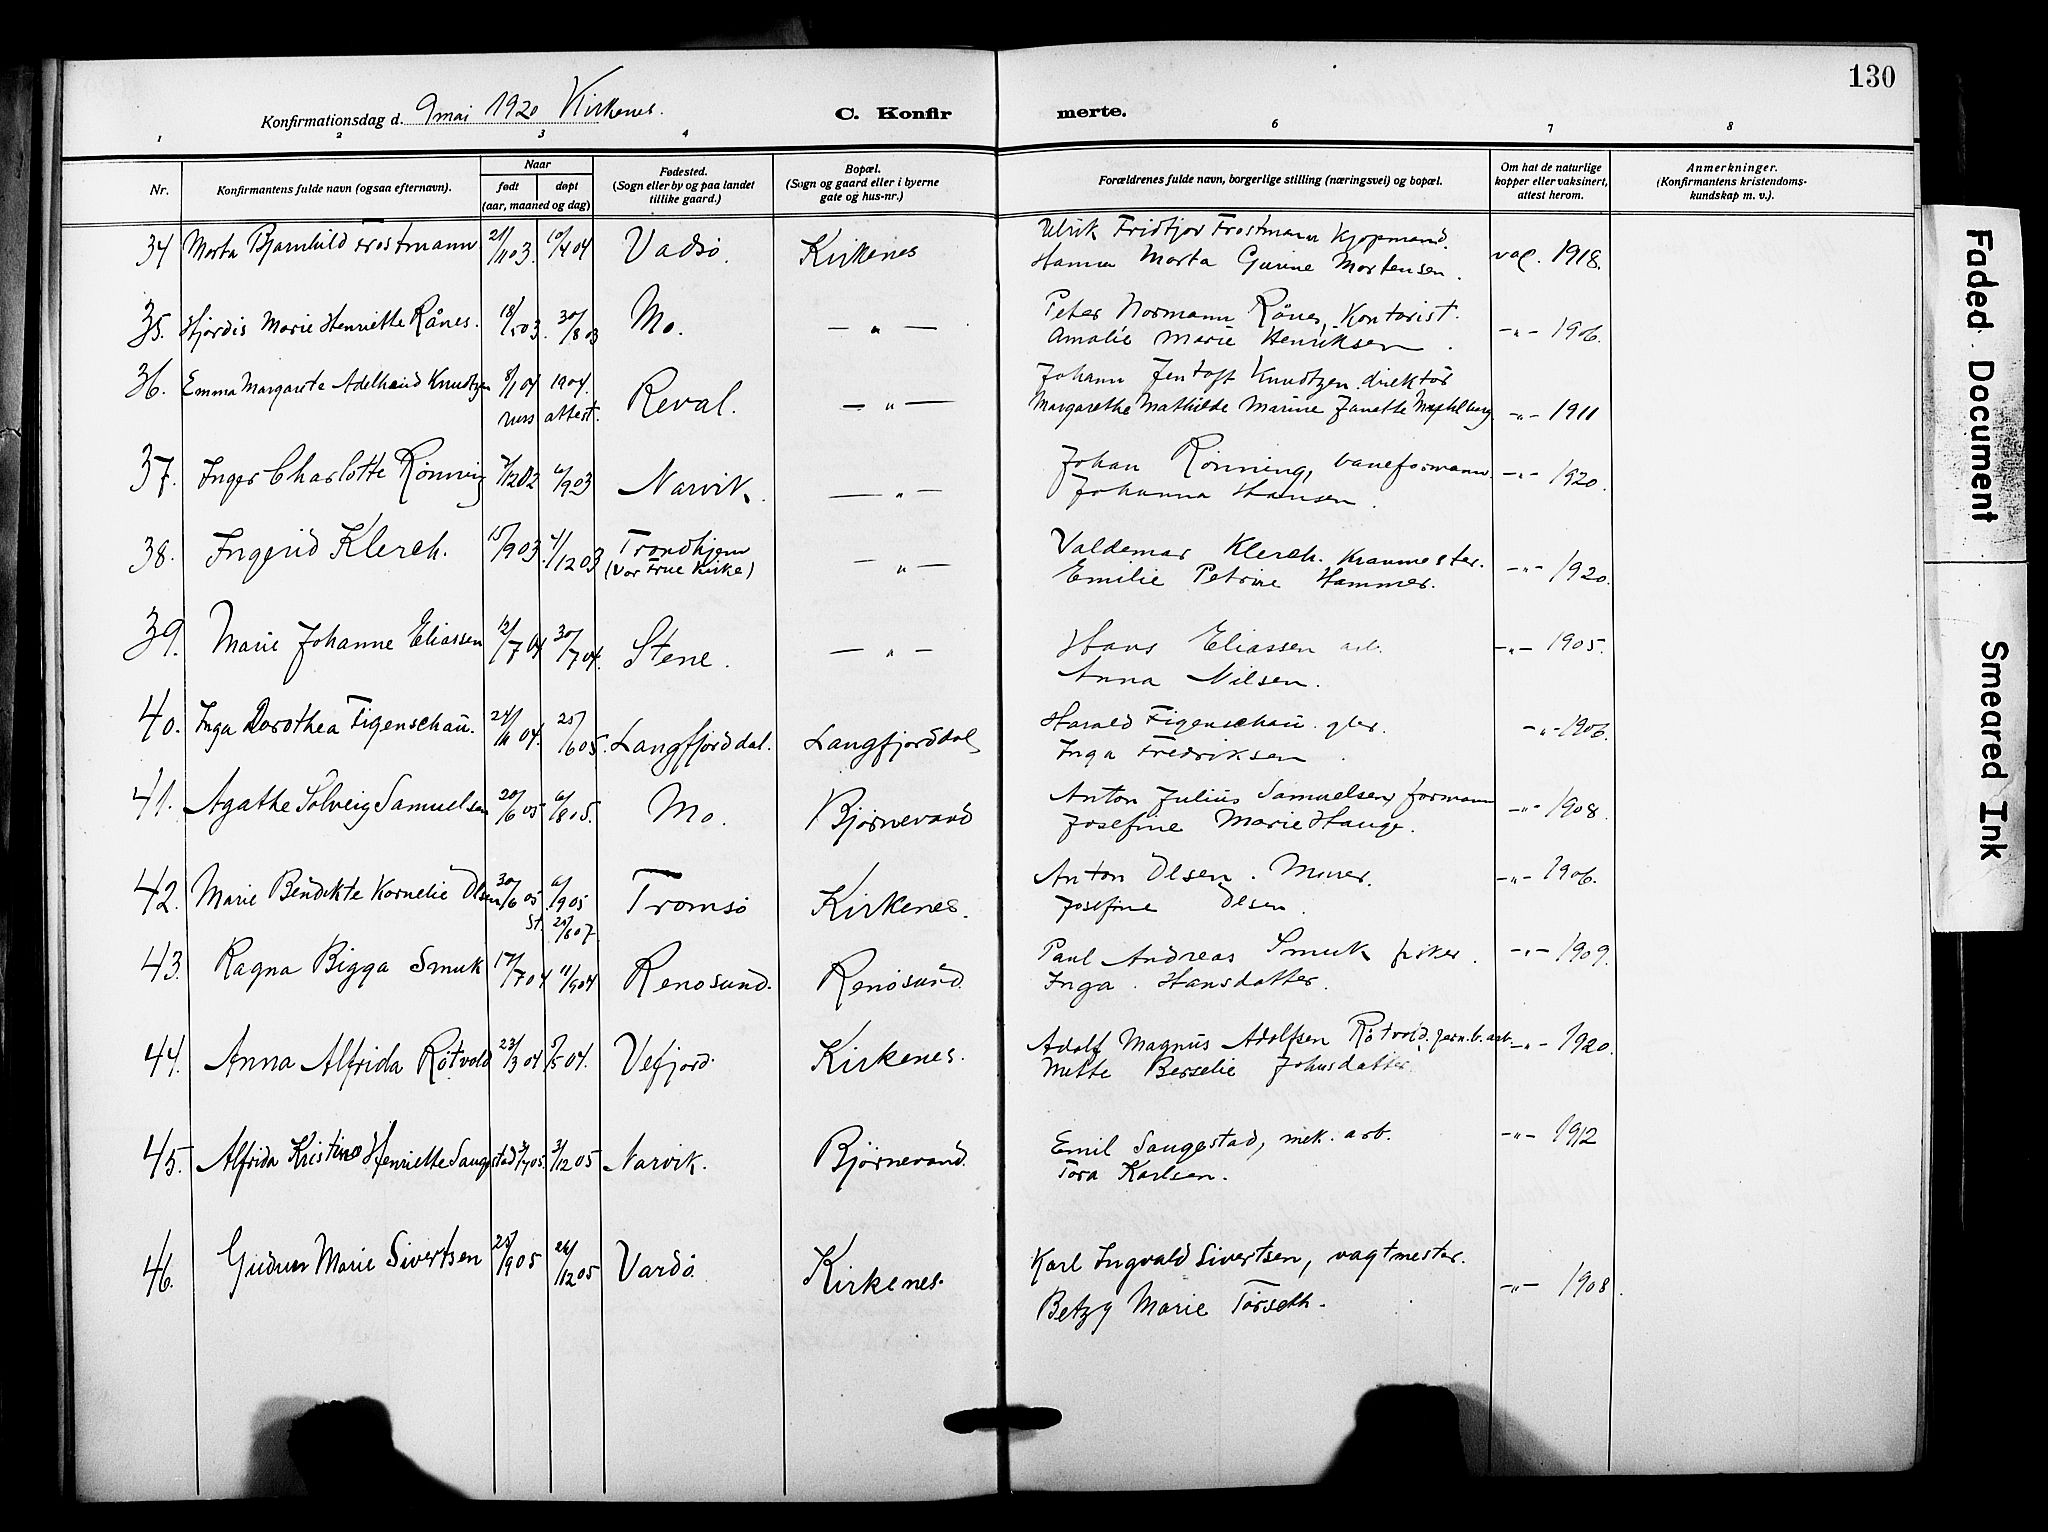 130
Konfirmationsdag d. 9 mai 1920 Kirkenes.
C. Konfirmerte.
1 2 3 4 6 7 8
Nr.
Konfirmantens fulde navn (ogsaa efternavn).
Naar
født døpt
(aar, maaned og dag)
Fødested.
(Sogn eller by og paa landet
tillike gaard.)
Bopæl.
(Sogn og gaard eller i byerne
gate og hus-nr.)
Forældrenes fulde navn, borgerlige stilling (næringsvei) og bopæl.
Om hat de naturlige
kopper eller vaksinert,
attest herom.
Anmerkninger.
(Konfirmantens kristendoms-
kundskap m. v.).
34 Marta Bjarnhild Frostmann 21/1103. 10/404 Vadsø. Kirkenes
Ulrik Fridtjor Frostmann Kjøpmand. vac. 1918.
Hanna Marta Gurine Mortensen.
35. Hjørdis Marie Henriette Rånes. 18/503. 30/803 Mo. — „ —
Peter Normann Rånes, Kontorist. -„- 1906.
Amalie Marie Henriksen.
36. Emma Margarete Adelheid Knudtzen 8/104 1904. Reval. — „ —
russ attest.
Johann Jentoft Knudtzen direktør
Margarethe Mathilde Marine Janette -„- 1911
37. Inger Charlotte Rønning 7/1202 6/903 Narvik. — „ —
Johan Rønning, baneformann. -„- 1920.
Johanna Hansen.
38. Ingerid Klerch. 15/903. /1203 Trondhjem — „ —
(Vor Frue Kirke)
Valdemar Klerch. Kranmester.
Emilie Petrine Hammer. -„- 1920.
39. Marie Johanne Eliassen 12/704 30/704. Stene. — „ —
Hans Eliassen arb. -„- 1905.
Anna Nilsen.
40. Inga Dorothea Figenschau. 24/1104. 25/605. Langfjorddal. Langfjorddal
Harald Figenschau. gbr. -„- 1906.
Inga Fredriksen.
41. Agathe Solveig Samuelsen 20/605 6/805. Mo. Bjørnevand
Anton Julius Samuelsen, formann -„- 1908.
Josefine Marie Hauge.
42. Marie Bendikte Kornelie Olsen 30/605 6/905 Tromsø Kirkenes.
St. 25/607.
Anton Olsen. Murer. -„- 1906.
Josefine Olsen.
43. Ragna Bigga Smuk 17/704 11/904 Renøsund. Renøsund.
Paul Andreas Smuk fisker. -„- 1909.
Inga Hansdatter.
44. Anna Alfrida Røtvold 23/304 5/504. Vefjord. Kirkenes.
Adolf Magnus Adolfsen Røtvold. jern.b.arb. -„- 1920.
Mette Berselie Johnsdatter
45. Alfrida Kristine Henriette Saugestad 3/705. 3/1205 Narvik. Bjørnevand.
Emil Saugestad, mek. arb. -„- 1912
Tora Karlsen.
46. Gudrun Marie Sivertsen 25/905 26/1205 Vardø. Kirkenes.
Karl Ingvald Sivertsen, vagtmester.
Betzy Marie Tørseth. -„- 1908.
Faded Document
Smeared Ink